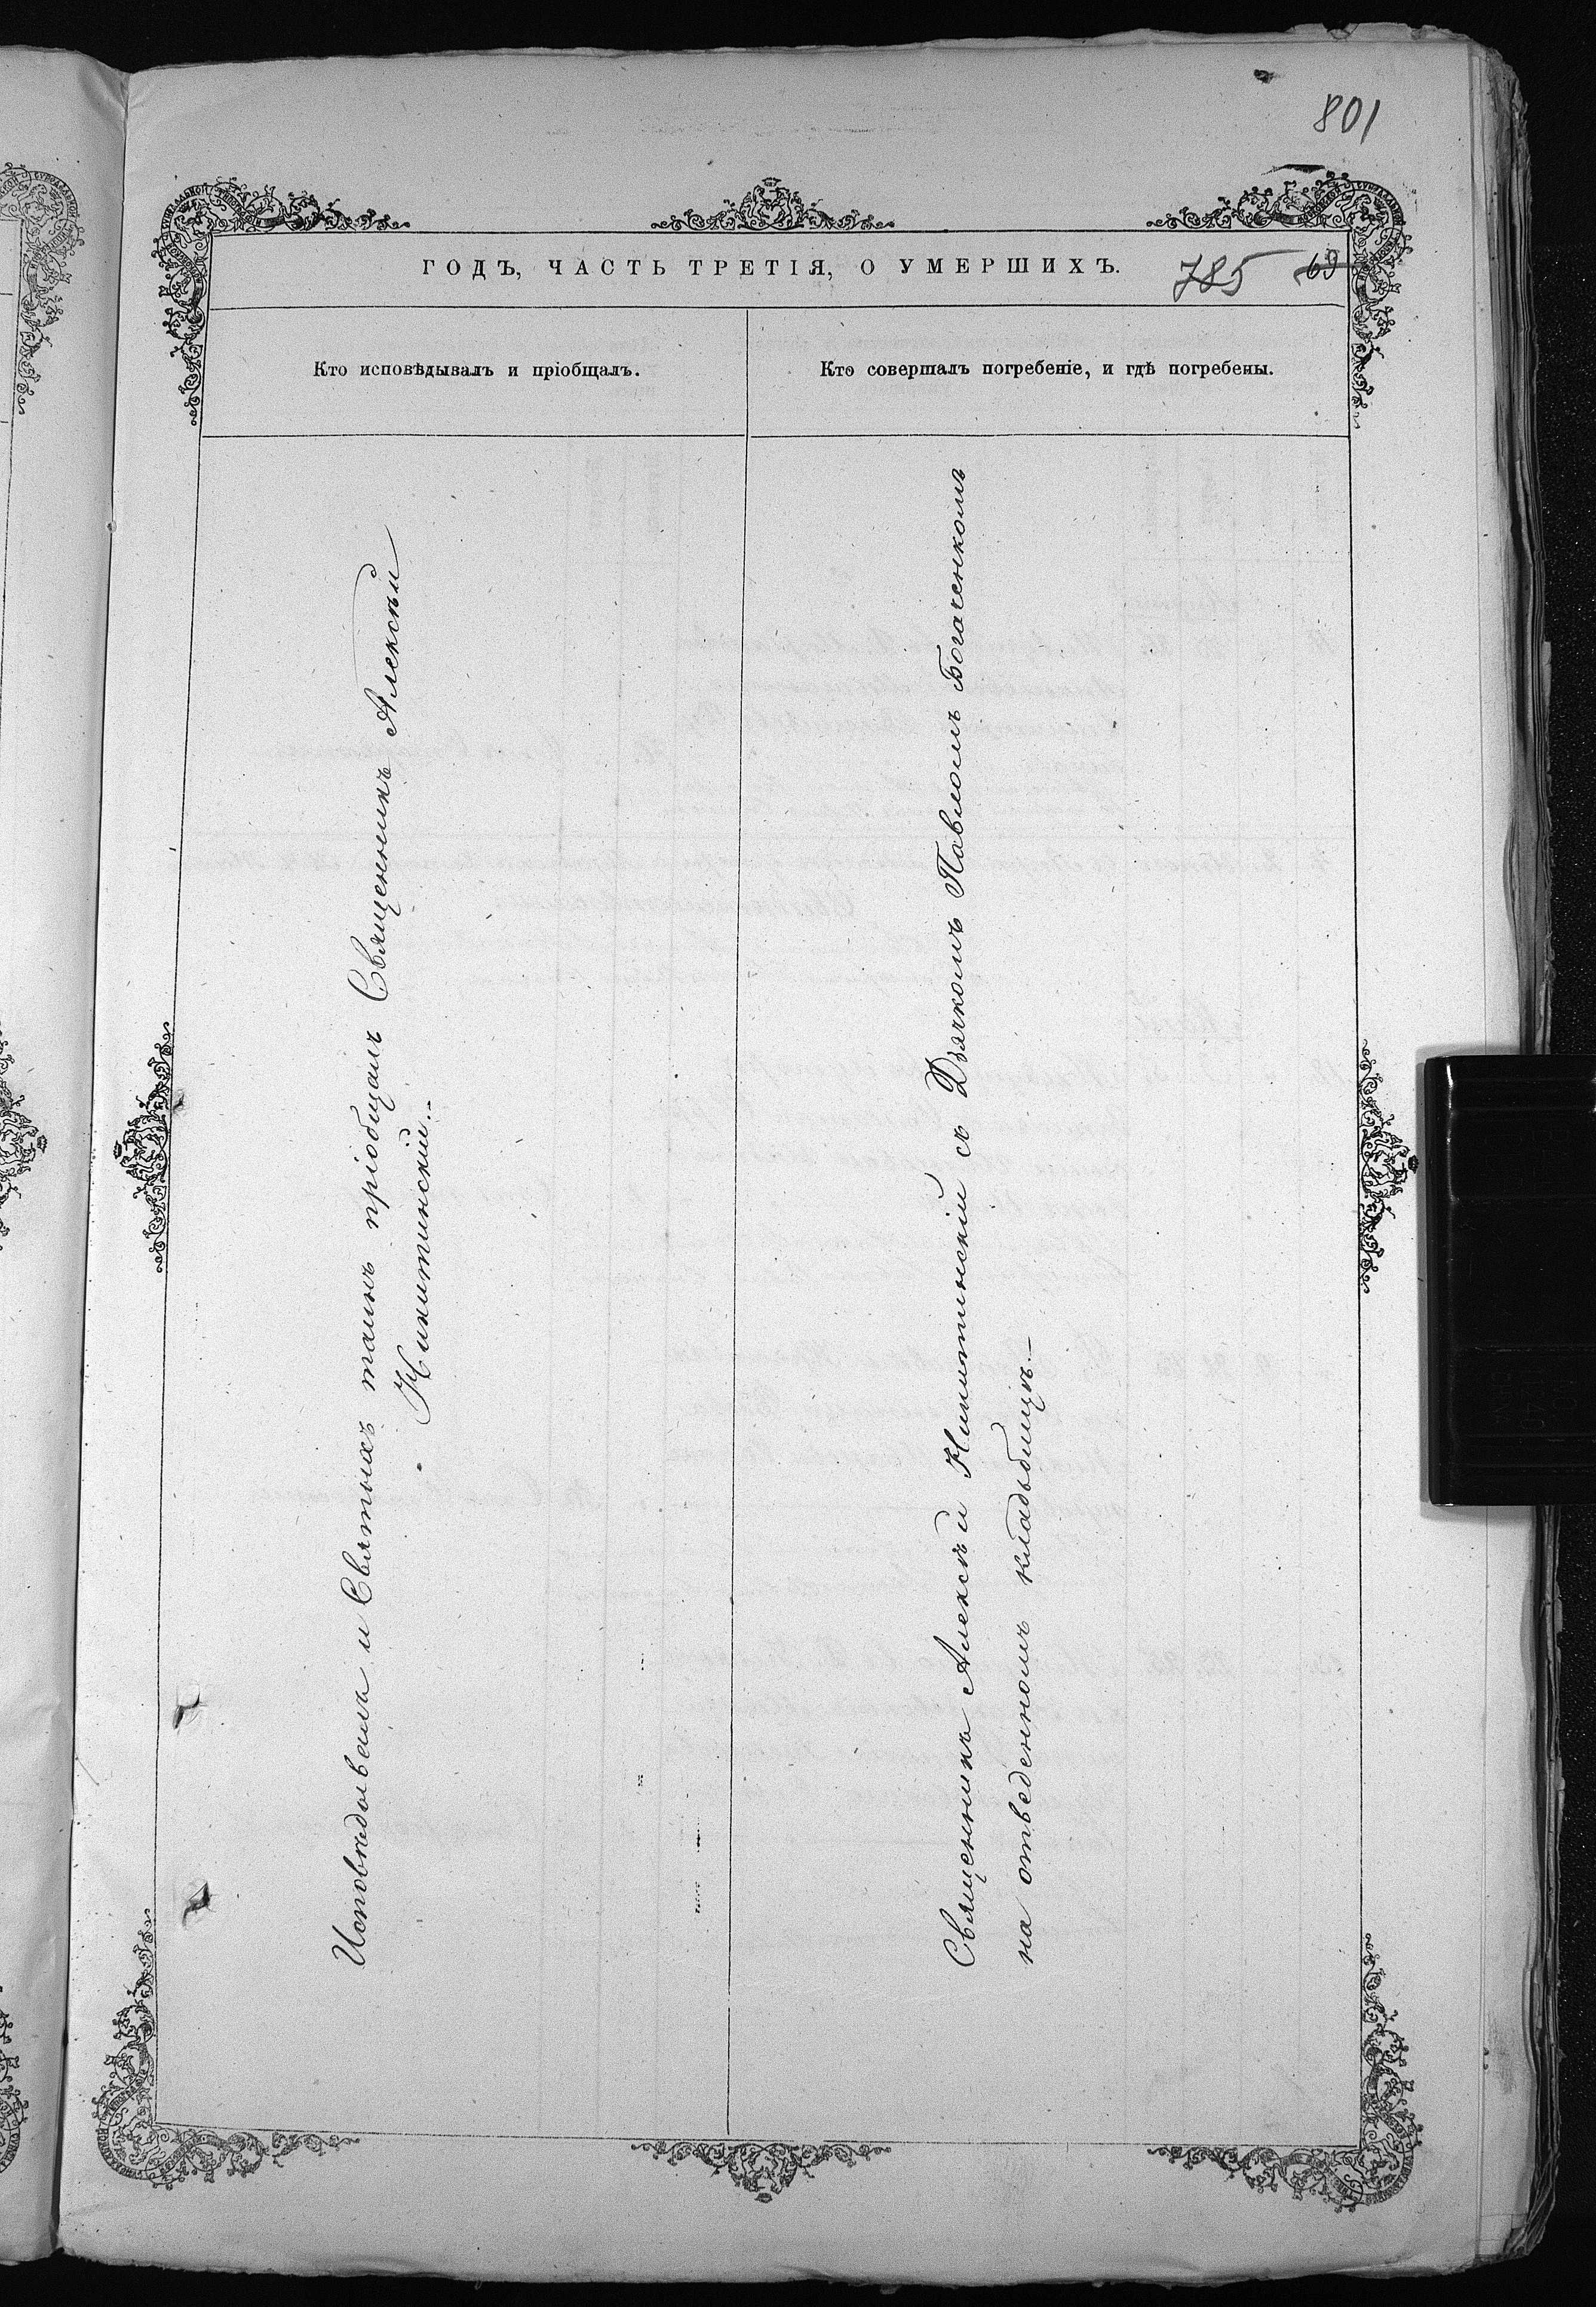 801
ГОДЪ, ЧАСТЬ ТРЕТІЯ, О УМЕРШИХЪ.
785 69
Кто исповѣдывалъ и пріобщалъ.
Кто совершалъ погребеніе, и гдѣ погребены.
Исповѣдывалъ и Святыхъ таинъ пріобщалъ Священникъ Алексѣй
Никитинскій.–
Священникъ Алексѣй Никитинскій съ Дьячкомъ Павломъ Богаченкомъ
на отведенномъ кладбищѣ.–